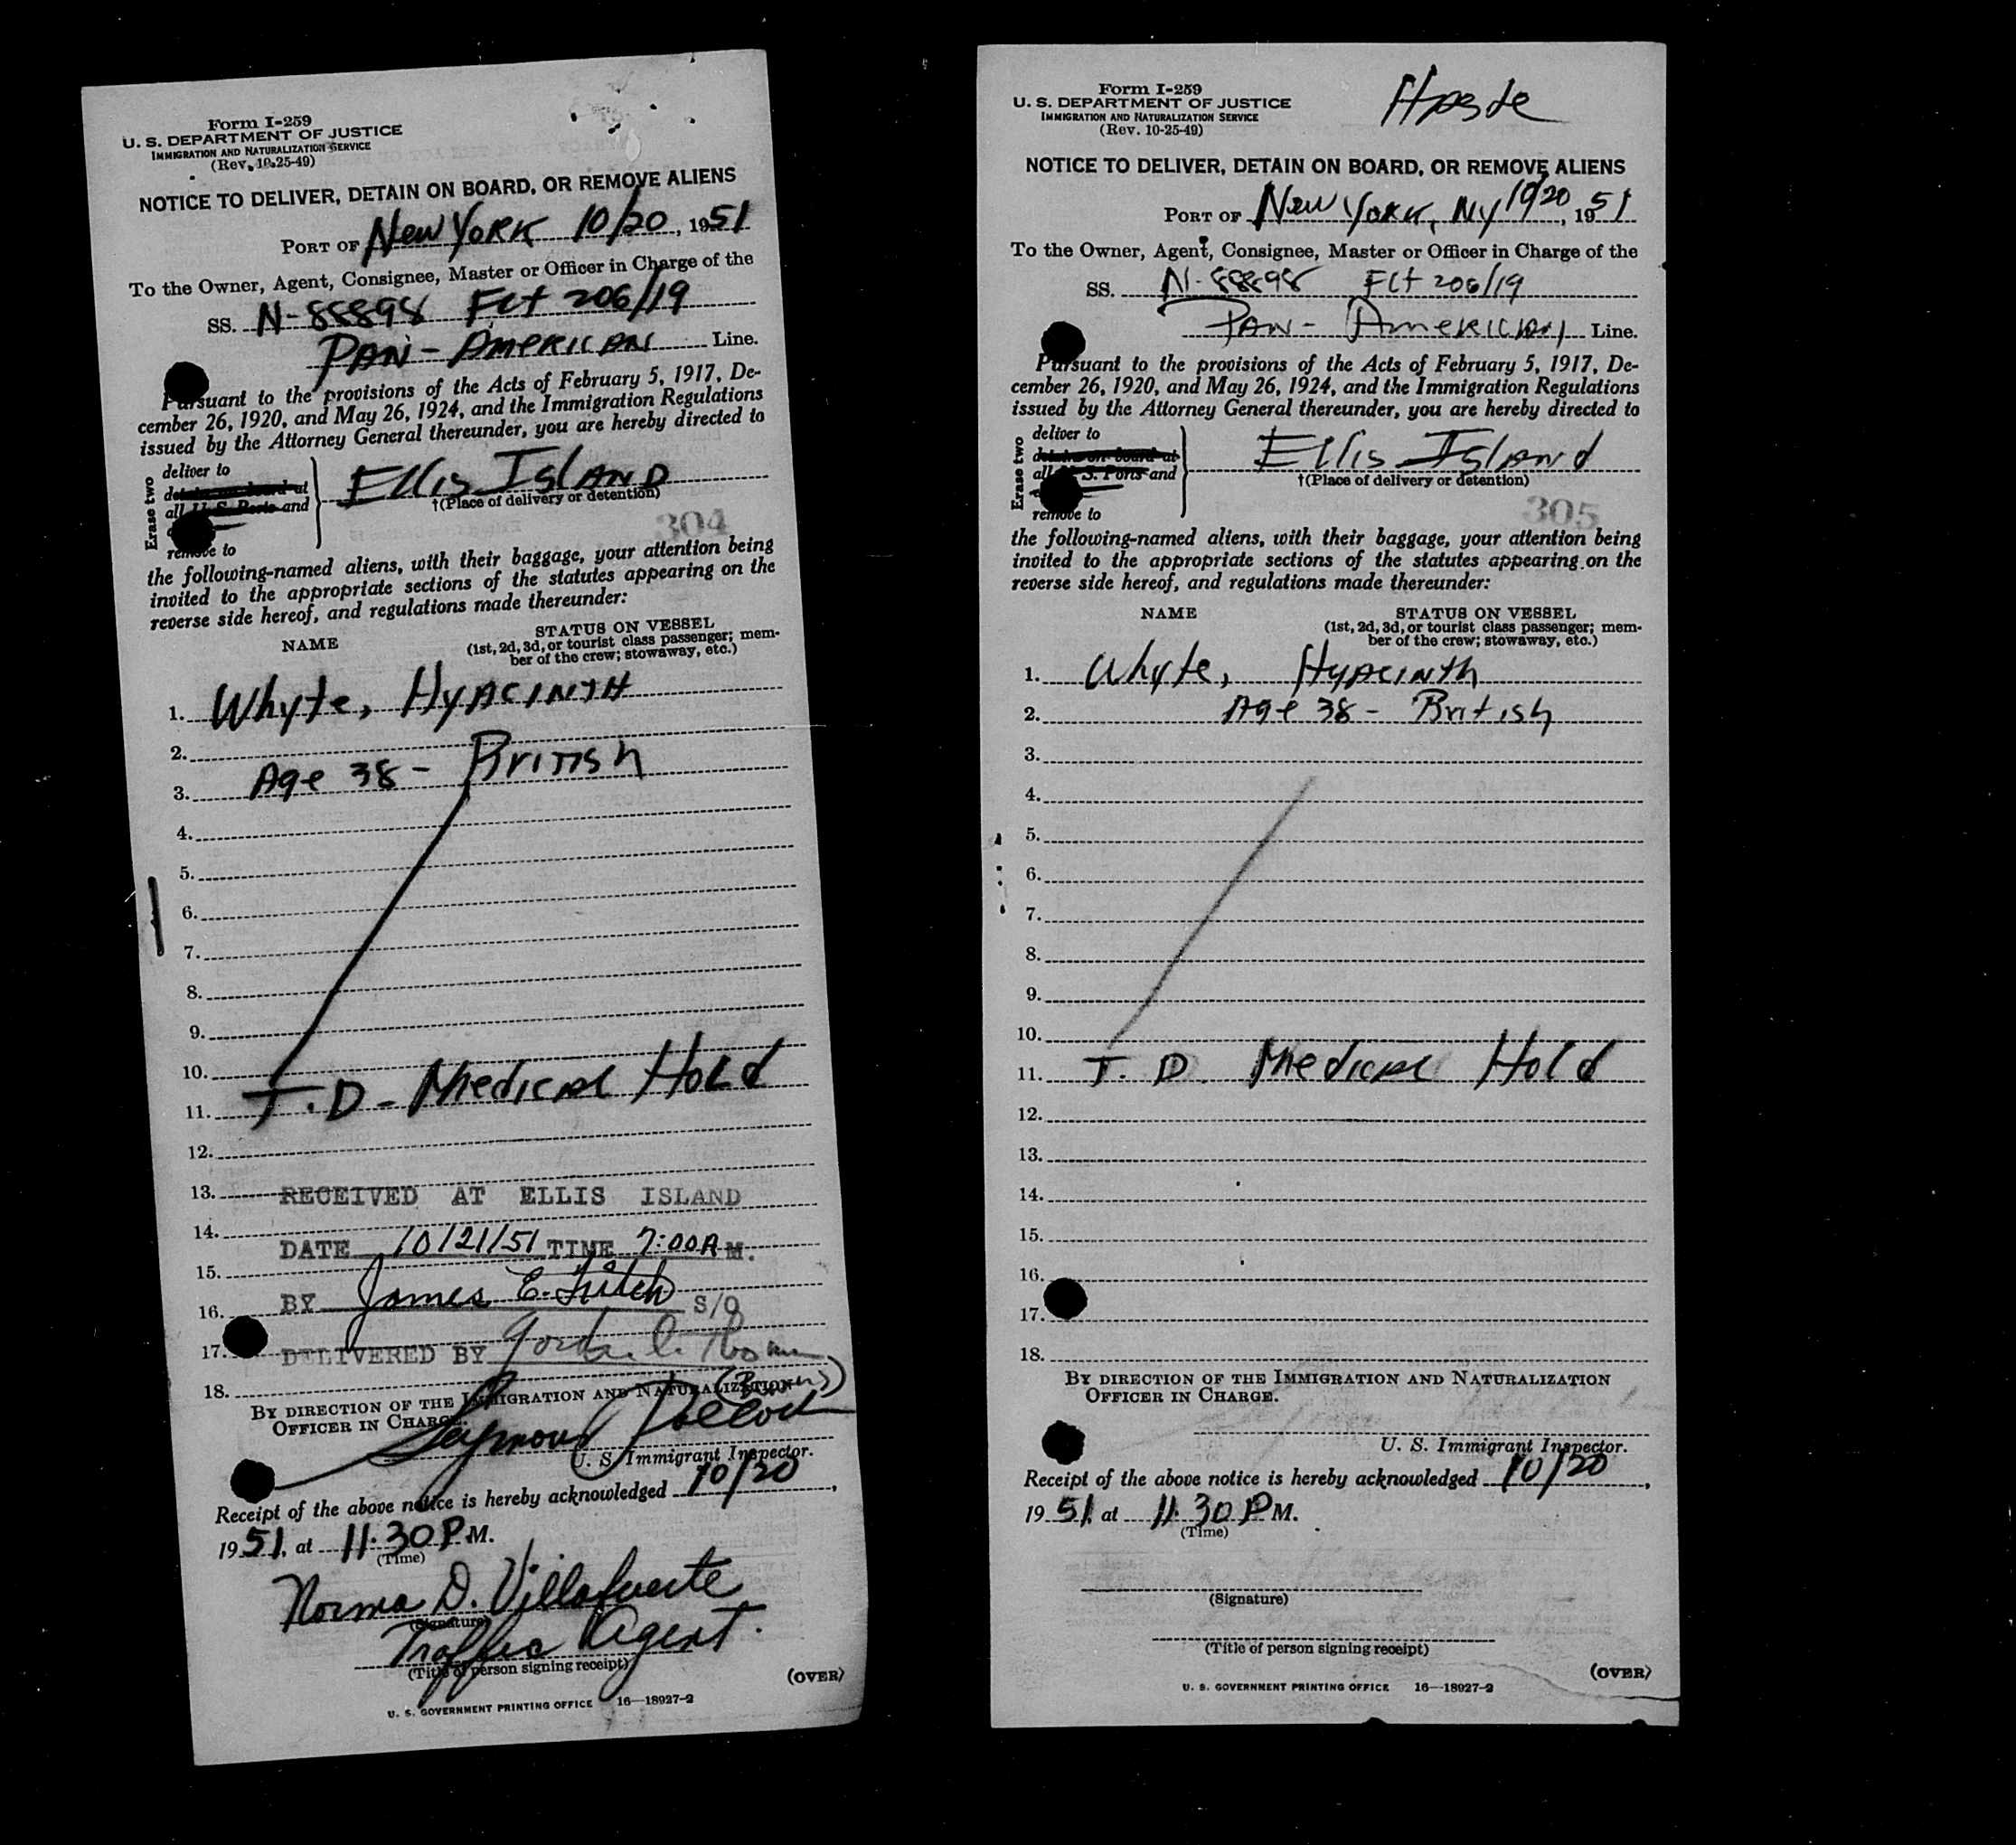 Form I-259
U. S. DEPARTMENT OF JUSTICE
IMMIGRATION AND NATURALIZATION SERVICE
(Rev. 10-25-49)
NOTICE TO DELIVER, DETAIN ON BOARD, OR REMOVE ALIENS
PORT OF New York 10/20, 1951
To the Owner, Agent, Consignee, Master or Officer in Charge of the
SS. N-88898 Flt 206/19
PAN-AMERICAN Line.
Pursuant to the provisions of the Acts of February 5, 1917, De-
cember 26, 1920, and May 26, 1924, and the Immigration Regulations
issued by the Attorney General thereunder, you are hereby directed to
Erase two
deliver to
detain on board at
all U. S. Ports and
remove to
Ellis Island
†(Place of delivery or detention)
304
the following-named aliens, with their baggage, your attention being
invited to the appropriate sections of the statutes appearing on the
reverse side hereof, and regulations made thereunder:
NAME
STATUS ON VESSEL
(1st, 2d, 3d, or tourist class passenger; mem-
ber of the crew; stowaway, etc.)
1. Whyte, HYACINTH
2.
3. Age 38 - British
4.
5.
6.
7.
8.
9.
10.
11. T.D - Medical Hold
12.
13. RECEIVED AT ELLIS ISLAND
14. DATE 10/21/51 TIME 7:00 A M.
15.
16. BY James E. Fitch S/O
17. DELIVERED BY
18.
BY DIRECTION OF THE IMMIGRATION AND NATURALIZATION
OFFICER IN CHARGE.
Seymour Pollock
U. S. Immigrant Inspector.
Receipt of the above notice is hereby acknowledged 10/20,
1951, at 11:30 P M.
(Time)
Norma D. Villafuerte
(Signature)
Traffic Agent.
(Title of person signing receipt)
(OVER)
U. S. GOVERNMENT PRINTING OFFICE 16—18927-2
Form I-259
U. S. DEPARTMENT OF JUSTICE
IMMIGRATION AND NATURALIZATION SERVICE
(Rev. 10-25-49)
NOTICE TO DELIVER, DETAIN ON BOARD, OR REMOVE ALIENS
PORT OF New York, NY 10/20, 1951
To the Owner, Agent, Consignee, Master or Officer in Charge of the
SS. N-88898 Flt 206/19
PAN-American Line.
Pursuant to the provisions of the Acts of February 5, 1917, De-
cember 26, 1920, and May 26, 1924, and the Immigration Regulations
issued by the Attorney General thereunder, you are hereby directed to
Erase two
deliver to
detain on board at
all U. S. Ports and
remove to
Ellis Island
†(Place of delivery or detention)
305
the following-named aliens, with their baggage, your attention being
invited to the appropriate sections of the statutes appearing on the
reverse side hereof, and regulations made thereunder:
NAME
STATUS ON VESSEL
(1st, 2d, 3d, or tourist class passenger; mem-
ber of the crew; stowaway, etc.)
1. Whyte, Hyacinth
2. Age 38 - British
3.
4.
5.
6.
7.
8.
9.
10.
11. T. D. Medical Hold
12.
13.
14.
15.
16.
17.
18.
BY DIRECTION OF THE IMMIGRATION AND NATURALIZATION
OFFICER IN CHARGE.
U. S. Immigrant Inspector.
Receipt of the above notice is hereby acknowledged 10/20,
1951, at 11:30 P M.
(Time)
(Signature)
(Title of person signing receipt)
(OVER)
U. S. GOVERNMENT PRINTING OFFICE 16—18927-2